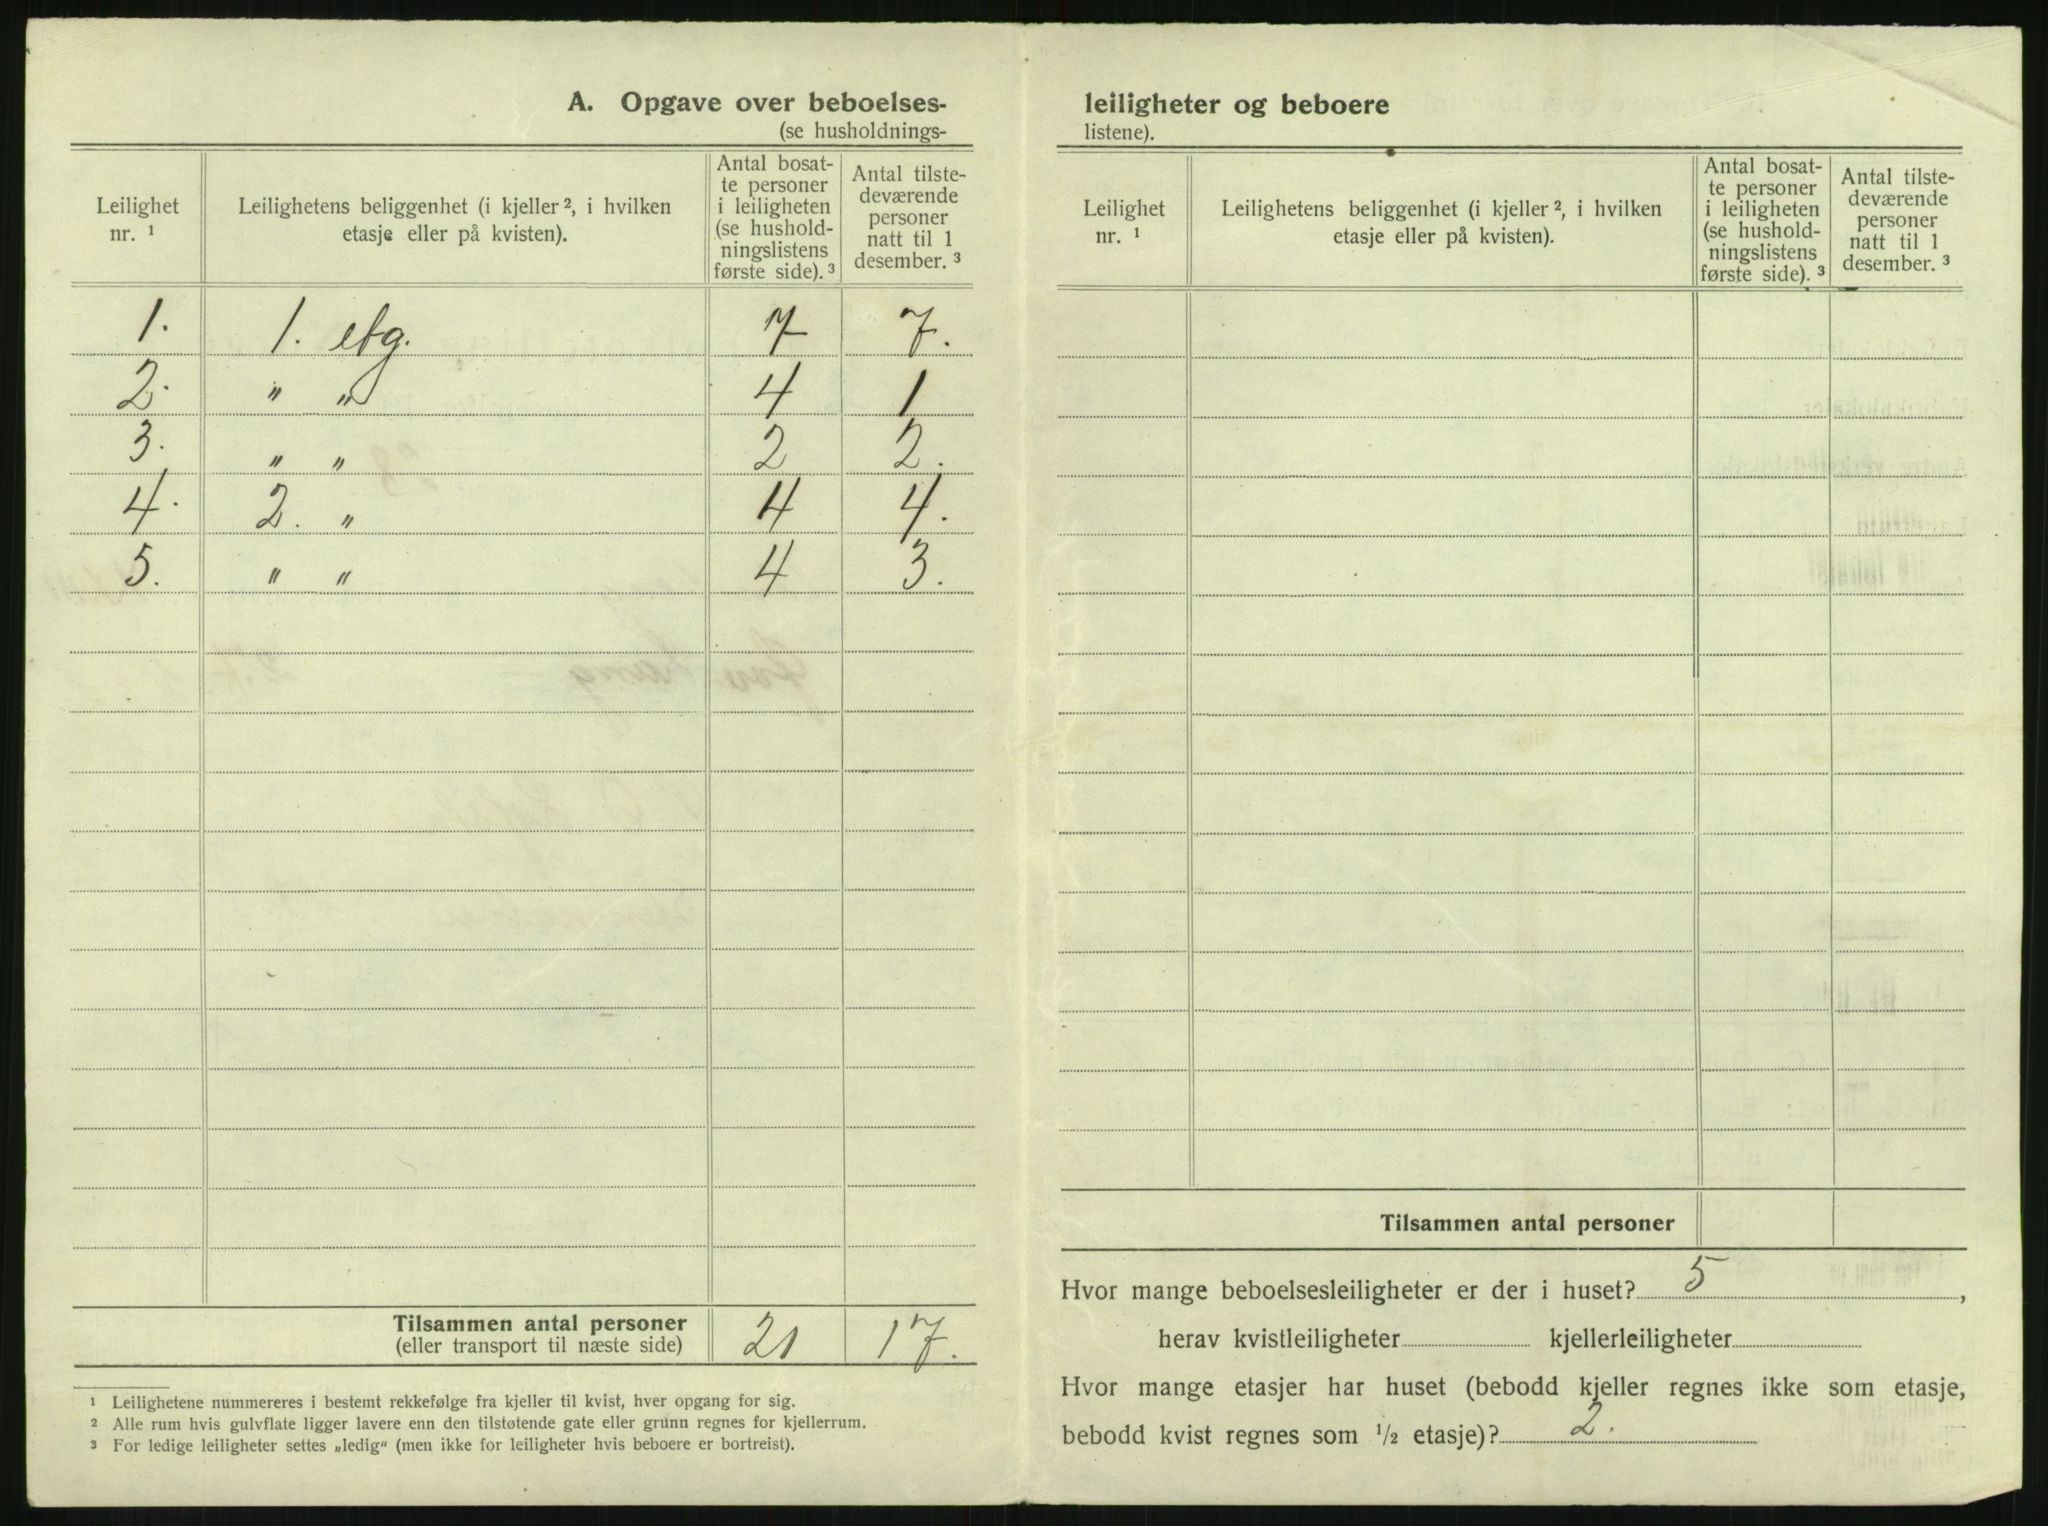 A. Opgave over beboelses-
(se husholdnings-
Leilighet nr. ¹
Leilighetens beliggenhet (i kjeller ², i hvilken etasje eller på kvisten).
Antal bosat-
te personer
i leiligheten
(se hushold-
ningslistens
første side). ³
Antal tilste-
deværende
personer
natt til 1
desember. ³
1. 1. etg. 7 7.
2. " " 4 1
3. " " 2 2.
4. 2. " 4 4.
5. " " 4 3.
Tilsammen antal personer 21 17.
(eller transport til næste side)
¹ Leilighetene nummereres i bestemt rekkefølge fra kjeller til kvist, hver opgang for sig.
² Alle rum hvis gulvflate ligger lavere enn den tilstøtende gate eller grunn regnes for kjellerrum.
³ For ledige leiligheter settes „ledig“ (men ikke for leiligheter hvis beboere er bortreist).
leiligheter og beboere
listene).
Leilighet nr. ¹
Leilighetens beliggenhet (i kjeller ², i hvilken etasje eller på kvisten).
Antal bosat-
te personer
i leiligheten
(se hushold-
ningslistens
første side). ³
Antal tilste-
deværende
personer
natt til 1
desember. ³
Tilsammen antal personer
Hvor mange beboelsesleiligheter er der i huset? 5 ,
herav kvistleiligheter kjellerleiligheter
Hvor mange etasjer har huset (bebodd kjeller regnes ikke som etasje,
bebodd kvist regnes som ½ etasje)? 2.